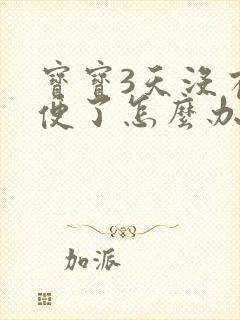 寶寶3天沒有
便了怎麼办
加派